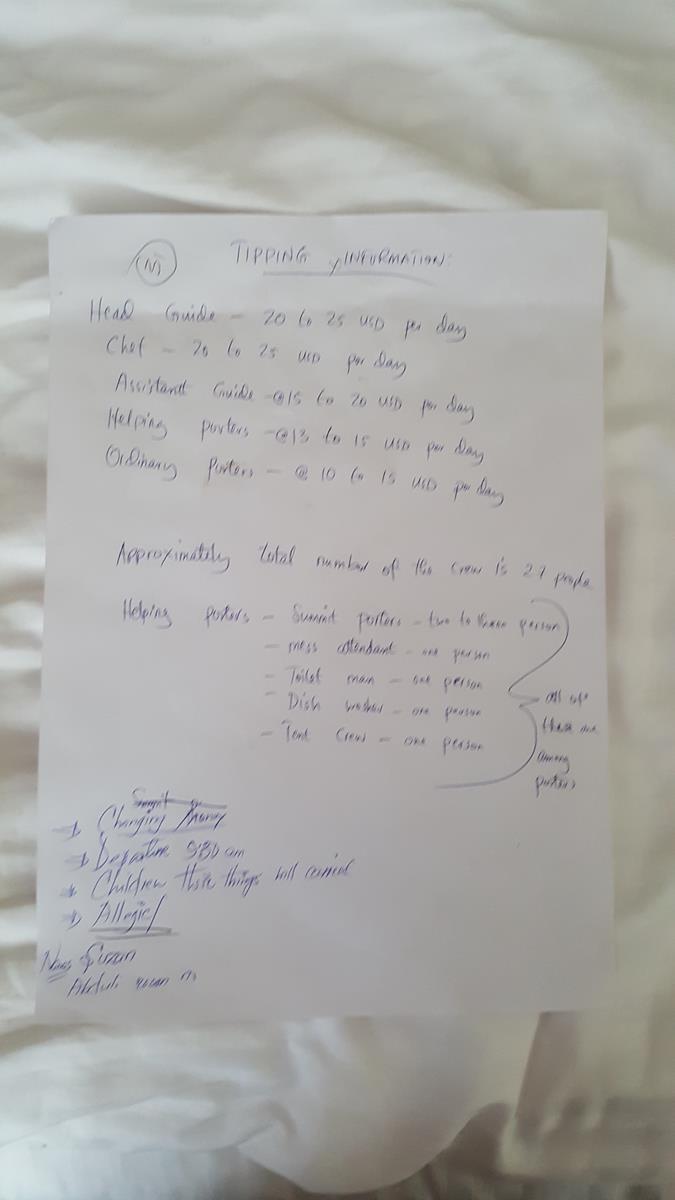 (N)
TIPPING INFORMATION:
Head Guide - 20 to 25 USD per day
Chef - 20 to 25 USD per day
Assistantt Guide - @15 to 20 USD per day
Helping porters - @13 to 15 USD per day
Ordinary Porters - @ 10 to 15 USD per day
Approximately total number of the crew is 27 people
Helping porters - Summit porters - two to three person
- mess attendant - one person
- Toilet man - one person
- Dish washer - one person
- Tent Crew - one person
all of
these are
among
porters
→ Changing Money
→ Departure
→ Children things will
→ Allegic